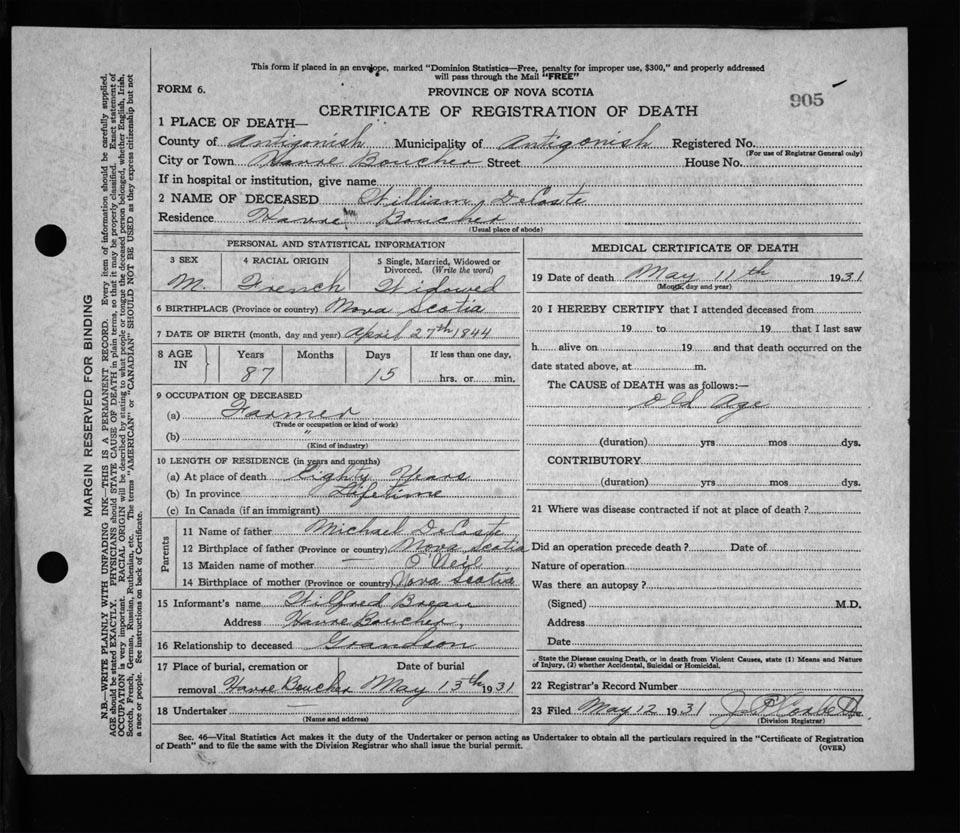 This form if placed in an envelope, marked "Dominion Statistics—Free, penalty for improper use, $300," and properly addressed
will pass through the Mail "FREE"
FORM 6.
PROVINCE OF NOVA SCOTIA
905
CERTIFICATE OF REGISTRATION OF DEATH
1 PLACE OF DEATH—
County of Antigonish Municipality of Antigonish Registered No.
(For use of Registrar General only)
City or Town Havre Boucher Street House No.
If in hospital or institution, give name
2 NAME OF DECEASED William DeCoste
Residence Havre Boucher
(Usual place of abode)
PERSONAL AND STATISTICAL INFORMATION
3 SEX 4 RACIAL ORIGIN 5 Single, Married, Widowed or
Divorced. (Write the word)
M. French Widowed
6 BIRTHPLACE (Province or country) Nova Scotia
7 DATE OF BIRTH (month, day and year) April 27th 1844
8 AGE IN Years Months Days If less than one day,
87 15 hrs. or min.
9 OCCUPATION OF DECEASED
(a) Farmer
(Trade or occupation or kind of work)
(b) "
(Kind of industry)
10 LENGTH OF RESIDENCE (in years and months)
(a) At place of death Eighty Years
(b) In province Lifetime
(c) In Canada (if an immigrant)
Parents
11 Name of father Michael DeCoste
12 Birthplace of father (Province or country) Nova Scotia
13 Maiden name of mother — O'Neil
14 Birthplace of mother (Province or country) Nova Scotia
15 Informant's name Wilfred Breau
Address Havre Boucher,
16 Relationship to deceased Grandson
17 Place of burial, cremation or Date of burial
removal Havre Boucher May 13th 1931
18 Undertaker —
(Name and address)
MEDICAL CERTIFICATE OF DEATH
19 Date of death May 11th 1931
(Month, day and year)
20 I HEREBY CERTIFY that I attended deceased from
19 to 19 that I last saw
h alive on 19 and that death occurred on the
date stated above, at m.
The CAUSE of DEATH was as follows:—
Old Age
(duration) yrs mos dys.
CONTRIBUTORY
(duration) yrs mos dys.
21 Where was disease contracted if not at place of death?
Did an operation precede death? Date of
Nature of operation
Was there an autopsy?
(Signed) M.D.
Address
Date
State the Disease causing Death, or in death from Violent Causes, state (1) Means and Nature
of Injury, (2) whether Accidental, Suicidal or Homicidal.
22 Registrar's Record Number
23 Filed May 12 1931
(Division Registrar)
Sec. 46—Vital Statistics Act makes it the duty of the Undertaker or person acting as Undertaker to obtain all the particulars required in the "Certificate of Registration
of Death" and to file the same with the Division Registrar who shall issue the burial permit.
(OVER)
MARGIN RESERVED FOR BINDING
N.B.—WRITE PLAINLY WITH UNFADING INK—THIS IS A PERMANENT RECORD. Every item of information should be carefully supplied.
AGE should be stated EXACTLY. PHYSICIANS should STATE CAUSE OF DEATH in plain terms, so that it may be properly classified. Exact statement of
OCCUPATION is very important. RACIAL ORIGIN will be described by stating to what people or tongue the deceased person belonged, whether English, Irish,
Scotch, French, German, Russian, Ruthenian, etc. The terms "AMERICAN" or "CANADIAN" SHOULD NOT BE USED as they express citizenship but not
a race or people. See instructions on back of Certificate.